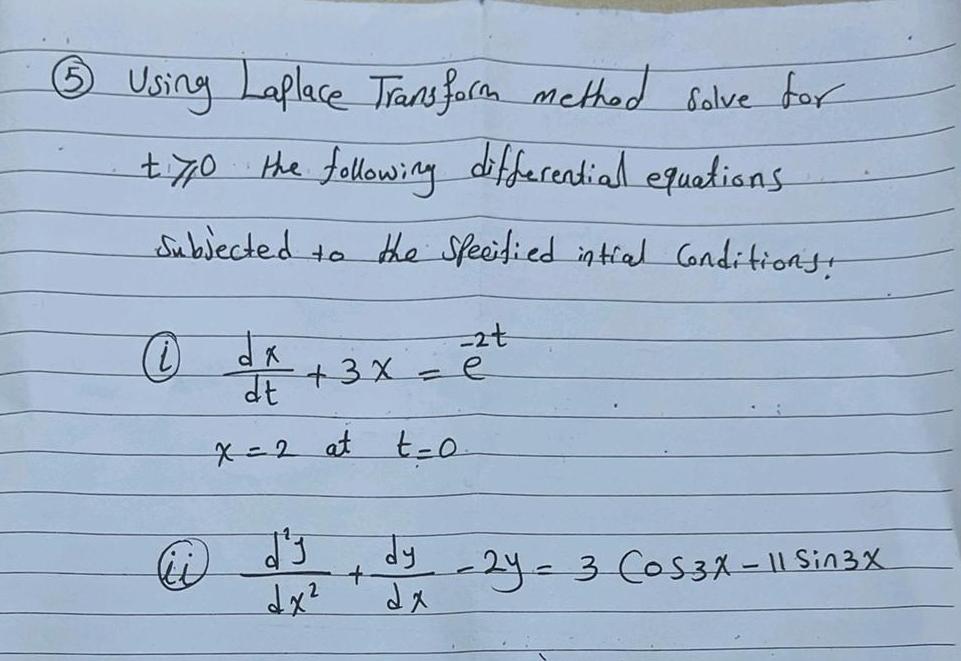 ⑤ Using Laplace Transform method solve for
t ⩾ 0 the following differential equations
Subjected to the Specified intial Conditions:
ⓘ dx/dt + 3x = e^-2t
x = 2 at t=0
ⓘⓘ d²y/dx² + dy/dx - 2y = 3 Cos3x - 11 Sin3x